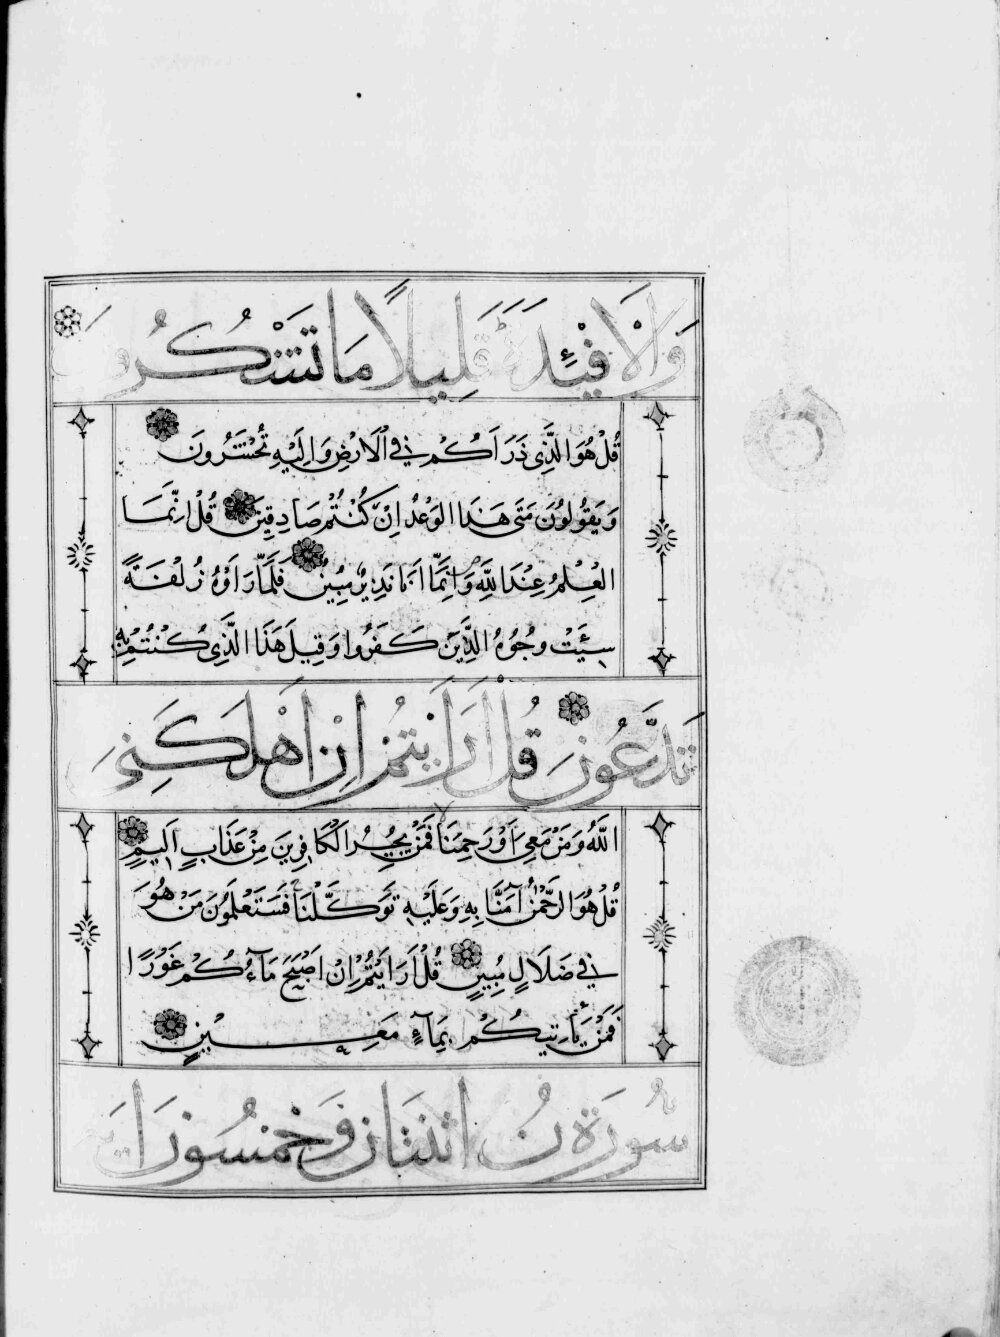 وَالْاَفْئِدَةَ قَلِيلًا مَا تَشْكُرُونَ
قُلْ هُوَ الَّذِي ذَرَاَكُمْ فِي الْاَرْضِ وَاِلَيْهِ تُحْشَرُونَ
وَيَقُولُونَ مَتَى هَذَا الْوَعْدُ اِنْ كُنْتُمْ صَادِقِينَ قُلْ اِنَّمَا
الْعِلْمُ عِنْدَ اللَّهِ وَاِنَّمَا اَنَا نَذِيرٌ مُبِينٌ فَلَمَّا رَاَوْهُ زُلْفَةً
سِيئَتْ وُجُوهُ الَّذِينَ كَفَرُوا وَقِيلَ هَذَا الَّذِي كُنْتُمْ بِهِ
تَدَّعُونَ قُلْ اَرَاَيْتُمْ اِنْ اَهْلَكَنِيَ
اللَّهُ وَمَنْ مَعِيَ اَوْ رَحِمَنَا فَمَنْ يُجِيرُ الْكَافِرِينَ مِنْ عَذَابٍ اَلِيمٍ
قُلْ هُوَ الرَّحْمٰنُ آمَنَّا بِهِ وَعَلَيْهِ تَوَكَّلْنَا فَسَتَعْلَمُونَ مَنْ هُوَ
فِي ضَلَالٍ مُبِينٍ قُلْ اَرَاَيْتُمْ اِنْ اَصْبَحَ مَآءُكُمْ غَوْرًا
فَمَنْ يَأْتِيكُمْ بِمَآءٍ مَعِينٍ
سُورَةُ نُ اثْنَتَانِ وَخَمْسُونَ اٰيَة